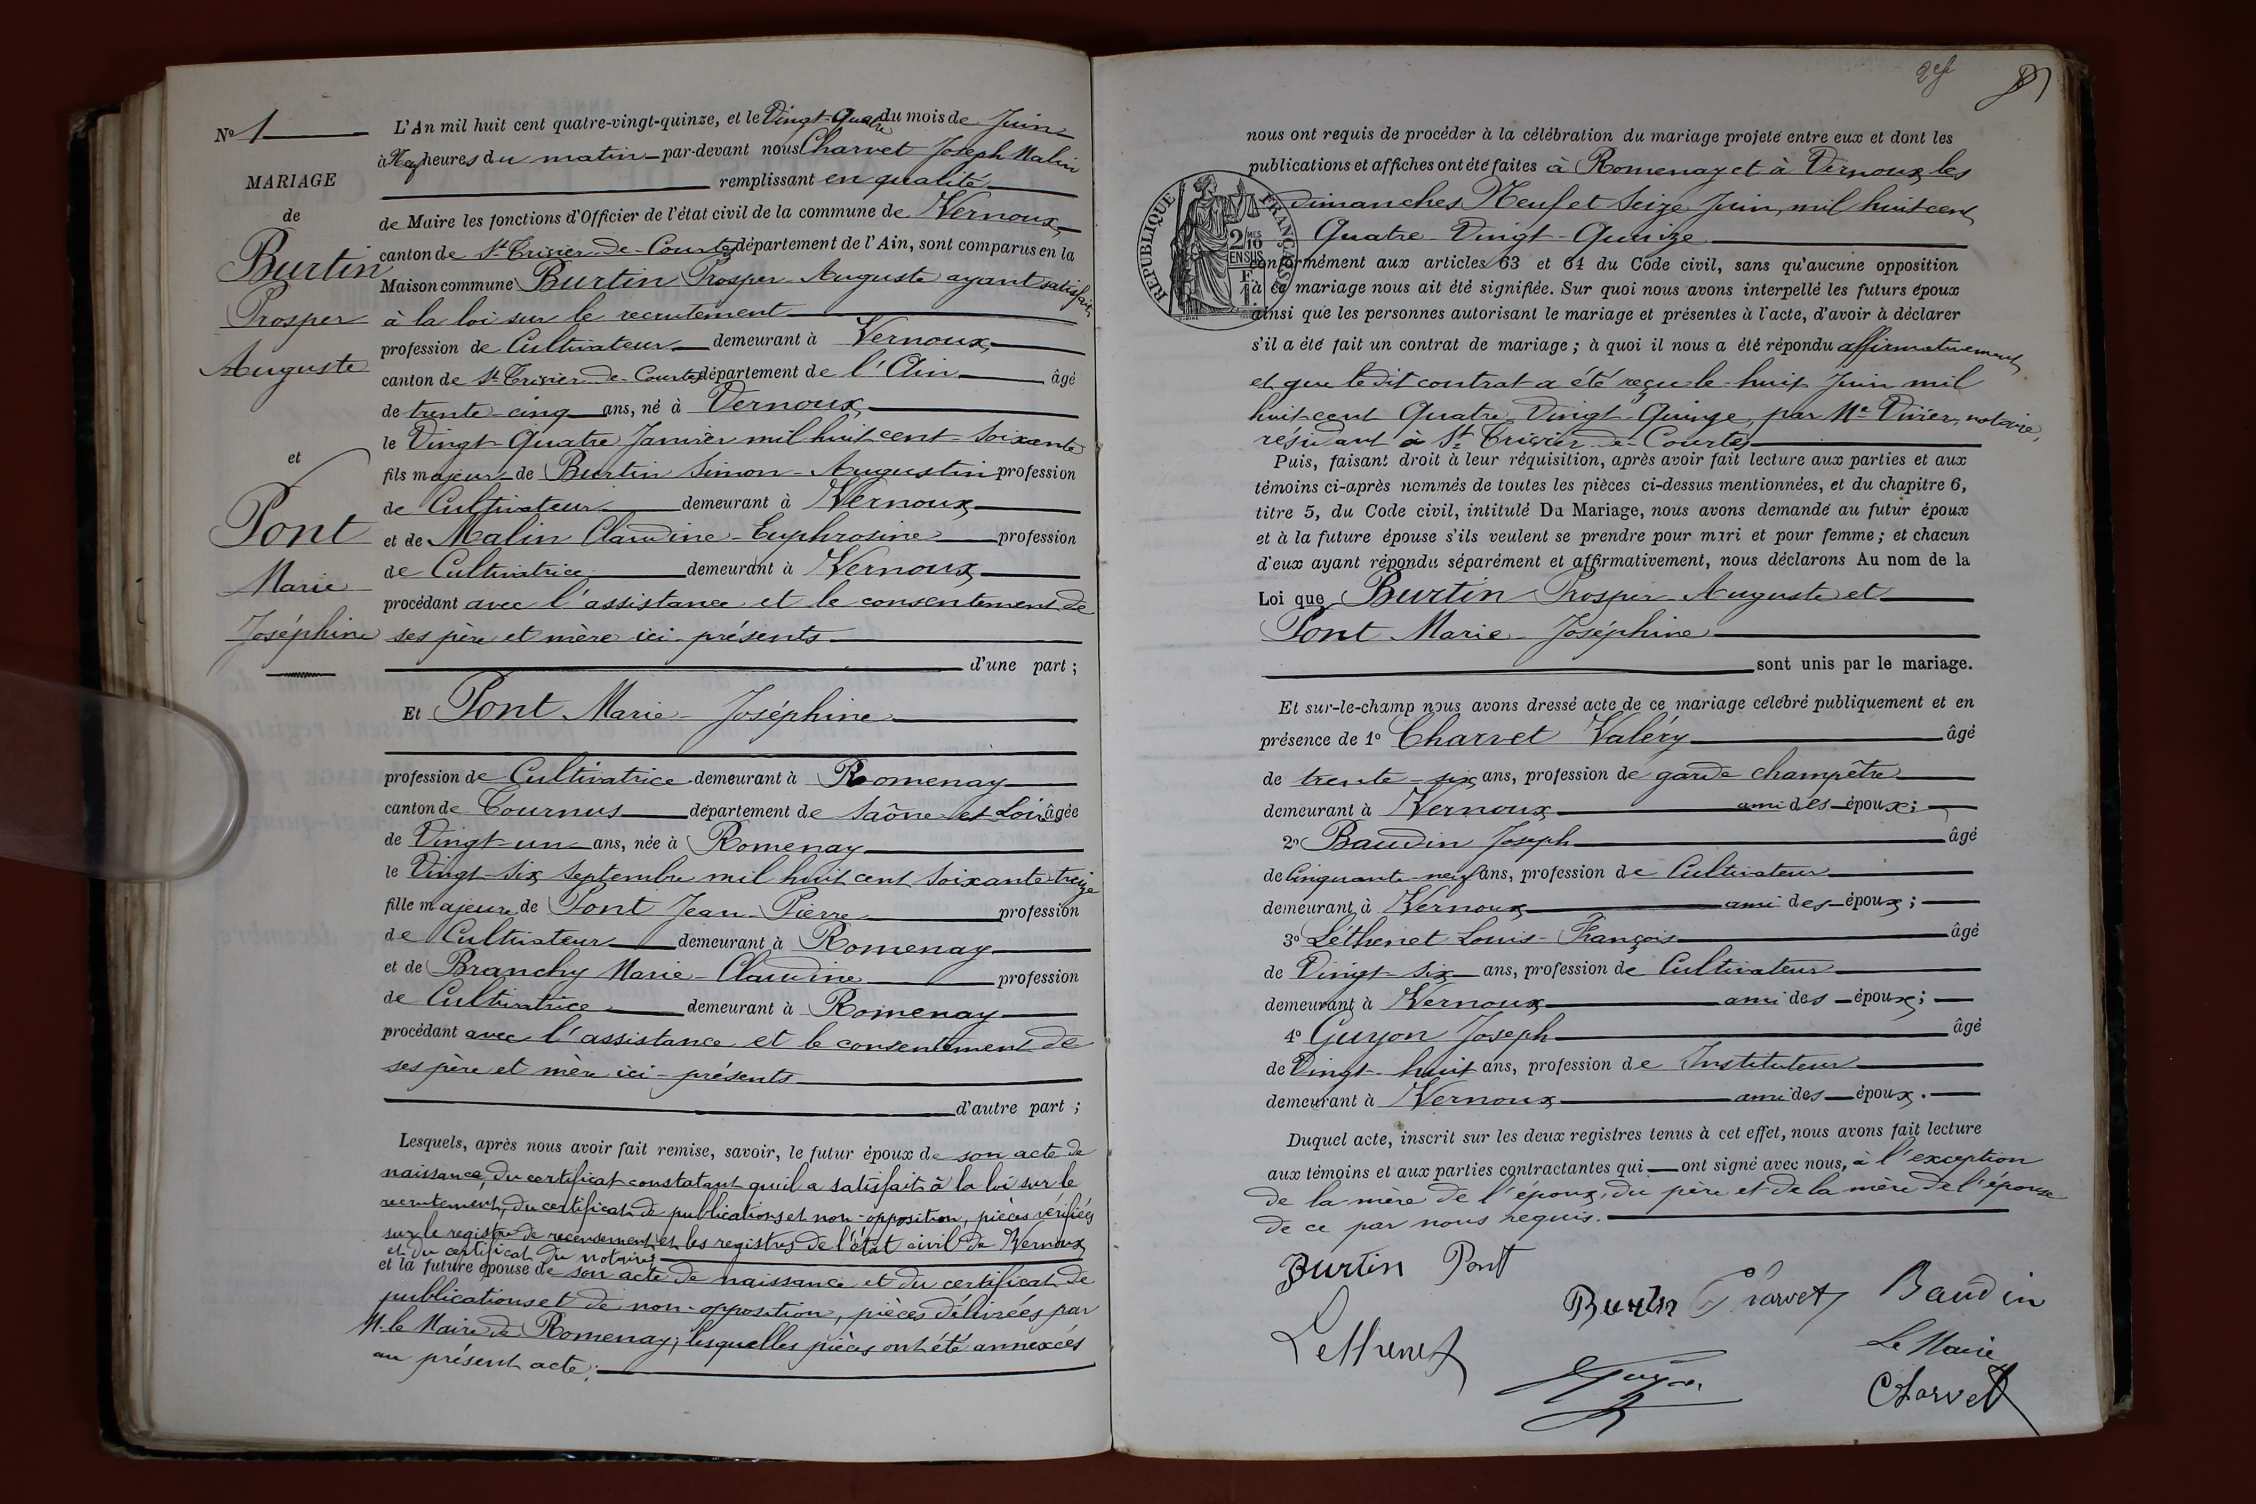 Nº 1
MARIAGE
de
Burtin
Prosper
Auguste
et
Pont
Marie
Joséphine
L'An mil huit cent quatre-vingt-quinze, et le Vingt-Quatre du mois de Juin
à heures du matin par-devant nous Charvet Joseph Malin
remplissant en qualité
de Maire les fonctions d'Officier de l'état civil de la commune de Vernoux
canton de St Trivier-de-Courtes département de l'Ain, sont comparus en la
Maison commune Burtin Prosper-Auguste ayant satisfait
à la loi sur le recrutement
profession de Cultivateur demeurant à Vernoux
canton de St Trivier-de-Courtes département de l'Ain âgé
de trente-cinq ans, né à Vernoux
le Vingt-Quatre Janvier mil huit cent-soixante
fils majeur de Burtin Simon-Augustin profession
de Cultivateur demeurant à Vernoux
et de Malin Claudine-Euphrosine profession
de Cultivatrice demeurant à Vernoux
procédant avec l'assistance et le consentement de
ses père et mère ici-présents
d'une part ;
Et Pont Marie-Joséphine
profession de Cultivatrice demeurant à Romenay
canton de Tournus département de Saône-et-Loire âgée
de Vingt-un ans, née à Romenay
le Vingt-six Septembre mil huit cent soixante-treize
fille majeure de Pont Jean-Pierre profession
de Cultivateur demeurant à Romenay
et de Branchy Marie-Claudine profession
de Cultivatrice demeurant à Romenay
procédant avec l'assistance et le consentement de
ses père et mère ici-présents
d'autre part ;
Lesquels, après nous avoir fait remise, savoir, le futur époux de son acte de
naissance, du certificat constatant qu'il a satisfait à la loi sur le
recrutement, du certificat de publications et non-opposition, pièces vérifiées
sur le registre de recensement et les registres de l'état civil de Vernoux
et du certificat du notaire
et la future épouse de son acte de naissance et du certificat de
publications et de non-opposition, pièces délivrées par
M. le Maire de Romenay, lesquelles pièces ont été annexées
au présent acte.
nous ont requis de procéder à la célébration du mariage projeté entre eux et dont les
publications et affiches ont été faites à Romenay et à Vernoux les
dimanches Neuf et Seize Juin, mil huit cent
Quatre-Vingt-Quinze
conformément aux articles 63 et 64 du Code civil, sans qu'aucune opposition
à ce mariage nous ait été signifiée. Sur quoi nous avons interpellé les futurs époux
ainsi que les personnes autorisant le mariage et présentes à l'acte, d'avoir à déclarer
s'il a été fait un contrat de mariage ; à quoi il nous a été répondu affirmativement
et que ledit contrat a été reçu le huit Juin mil
huit cent Quatre-Vingt-Quinze, par Me Vivier, notaire,
résidant à St Trivier-de-Courtes
Puis, faisant droit à leur réquisition, après avoir fait lecture aux parties et aux
témoins ci-après nommés de toutes les pièces ci-dessus mentionnées, et du chapitre 6,
titre 5, du Code civil, intitulé Du Mariage, nous avons demandé au futur époux
et à la future épouse s'ils veulent se prendre pour mari et pour femme ; et chacun
d'eux ayant répondu séparément et affirmativement, nous déclarons Au nom de la
Loi que Burtin Prosper-Auguste et
Pont Marie-Joséphine
sont unis par le mariage.
Et sur-le-champ nous avons dressé acte de ce mariage célébré publiquement et en
présence de 1º Charvet Valéry âgé
de trente-six ans, profession de garde champêtre
demeurant à Vernoux ami des époux ;
2º Baudin Joseph âgé
de Cinquante-neuf ans, profession de Cultivateur
demeurant à Vernoux ami des époux ;
3º Léthenet Louis-François âgé
de Vingt-six ans, profession de Cultivateur
demeurant à Vernoux ami des époux ;
4º Guyon Joseph âgé
de Vingt-huit ans, profession de Instituteur
demeurant à Vernoux ami des époux.
Duquel acte, inscrit sur les deux registres tenus à cet effet, nous avons fait lecture
aux témoins et aux parties contractantes qui ont signé avec nous, à l'exception
de la mère de l'époux, du père et de la mère de l'épouse
de ce par nous requis.
Burtin Pont
Burtin Charvet Baudin
Lethenet
Guyon
Le Maire
Charvet
RÉPUBLIQUE FRANÇAISE
2/10 MES
EN SUS